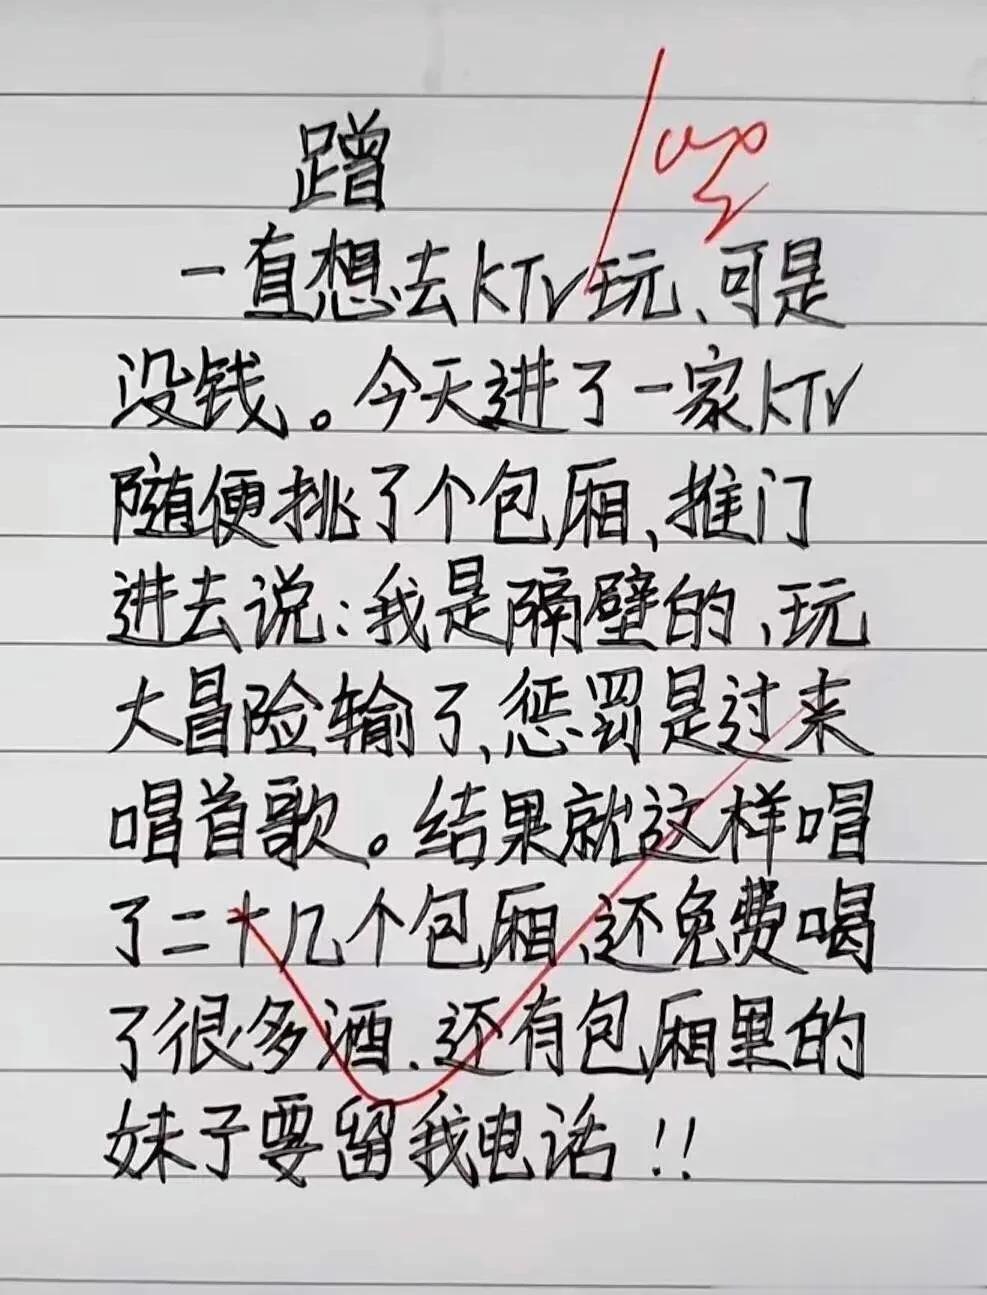 蹭
一直想去KTV玩、可是
没钱。今天进了一家KTV
随便挑了个包厢,推门
进去说:我是隔壁的、玩
大冒险输了,惩罚是过来
唱首歌。结果就这样唱
了二十几个包厢、还免费喝
了很多酒.还有包厢里的
妹子要留我电话!!